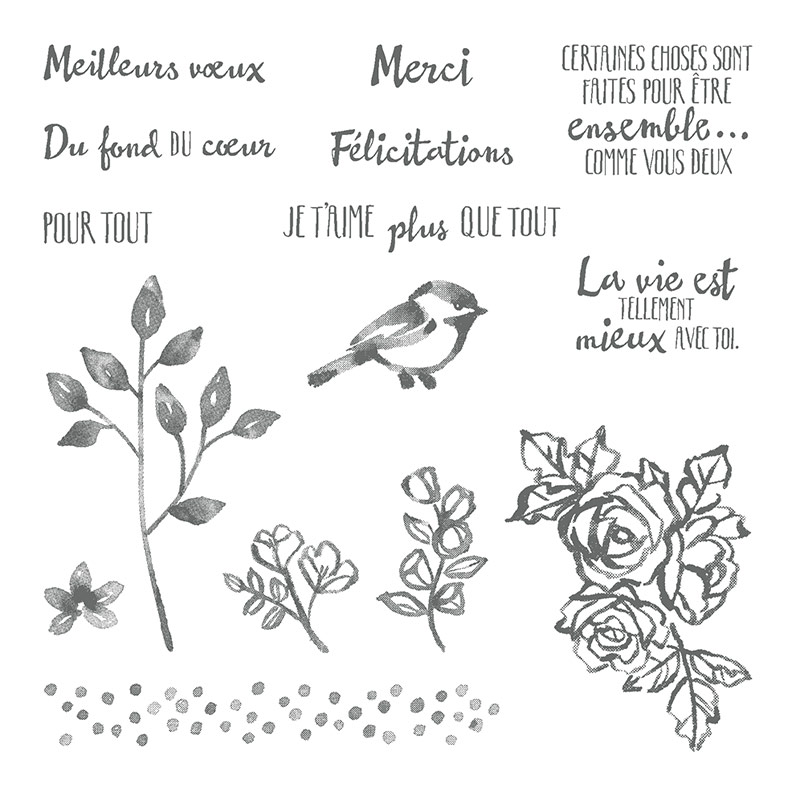 Meilleurs vœux
Merci
CERTAINES CHOSES SONT
FAITES POUR ÊTRE
ensemble...
COMME VOUS DEUX
Du fond DU cœur
Félicitations
POUR TOUT
JE T'AIME plus QUE TOUT
La vie est
TELLEMENT
mieux AVEC TOI.